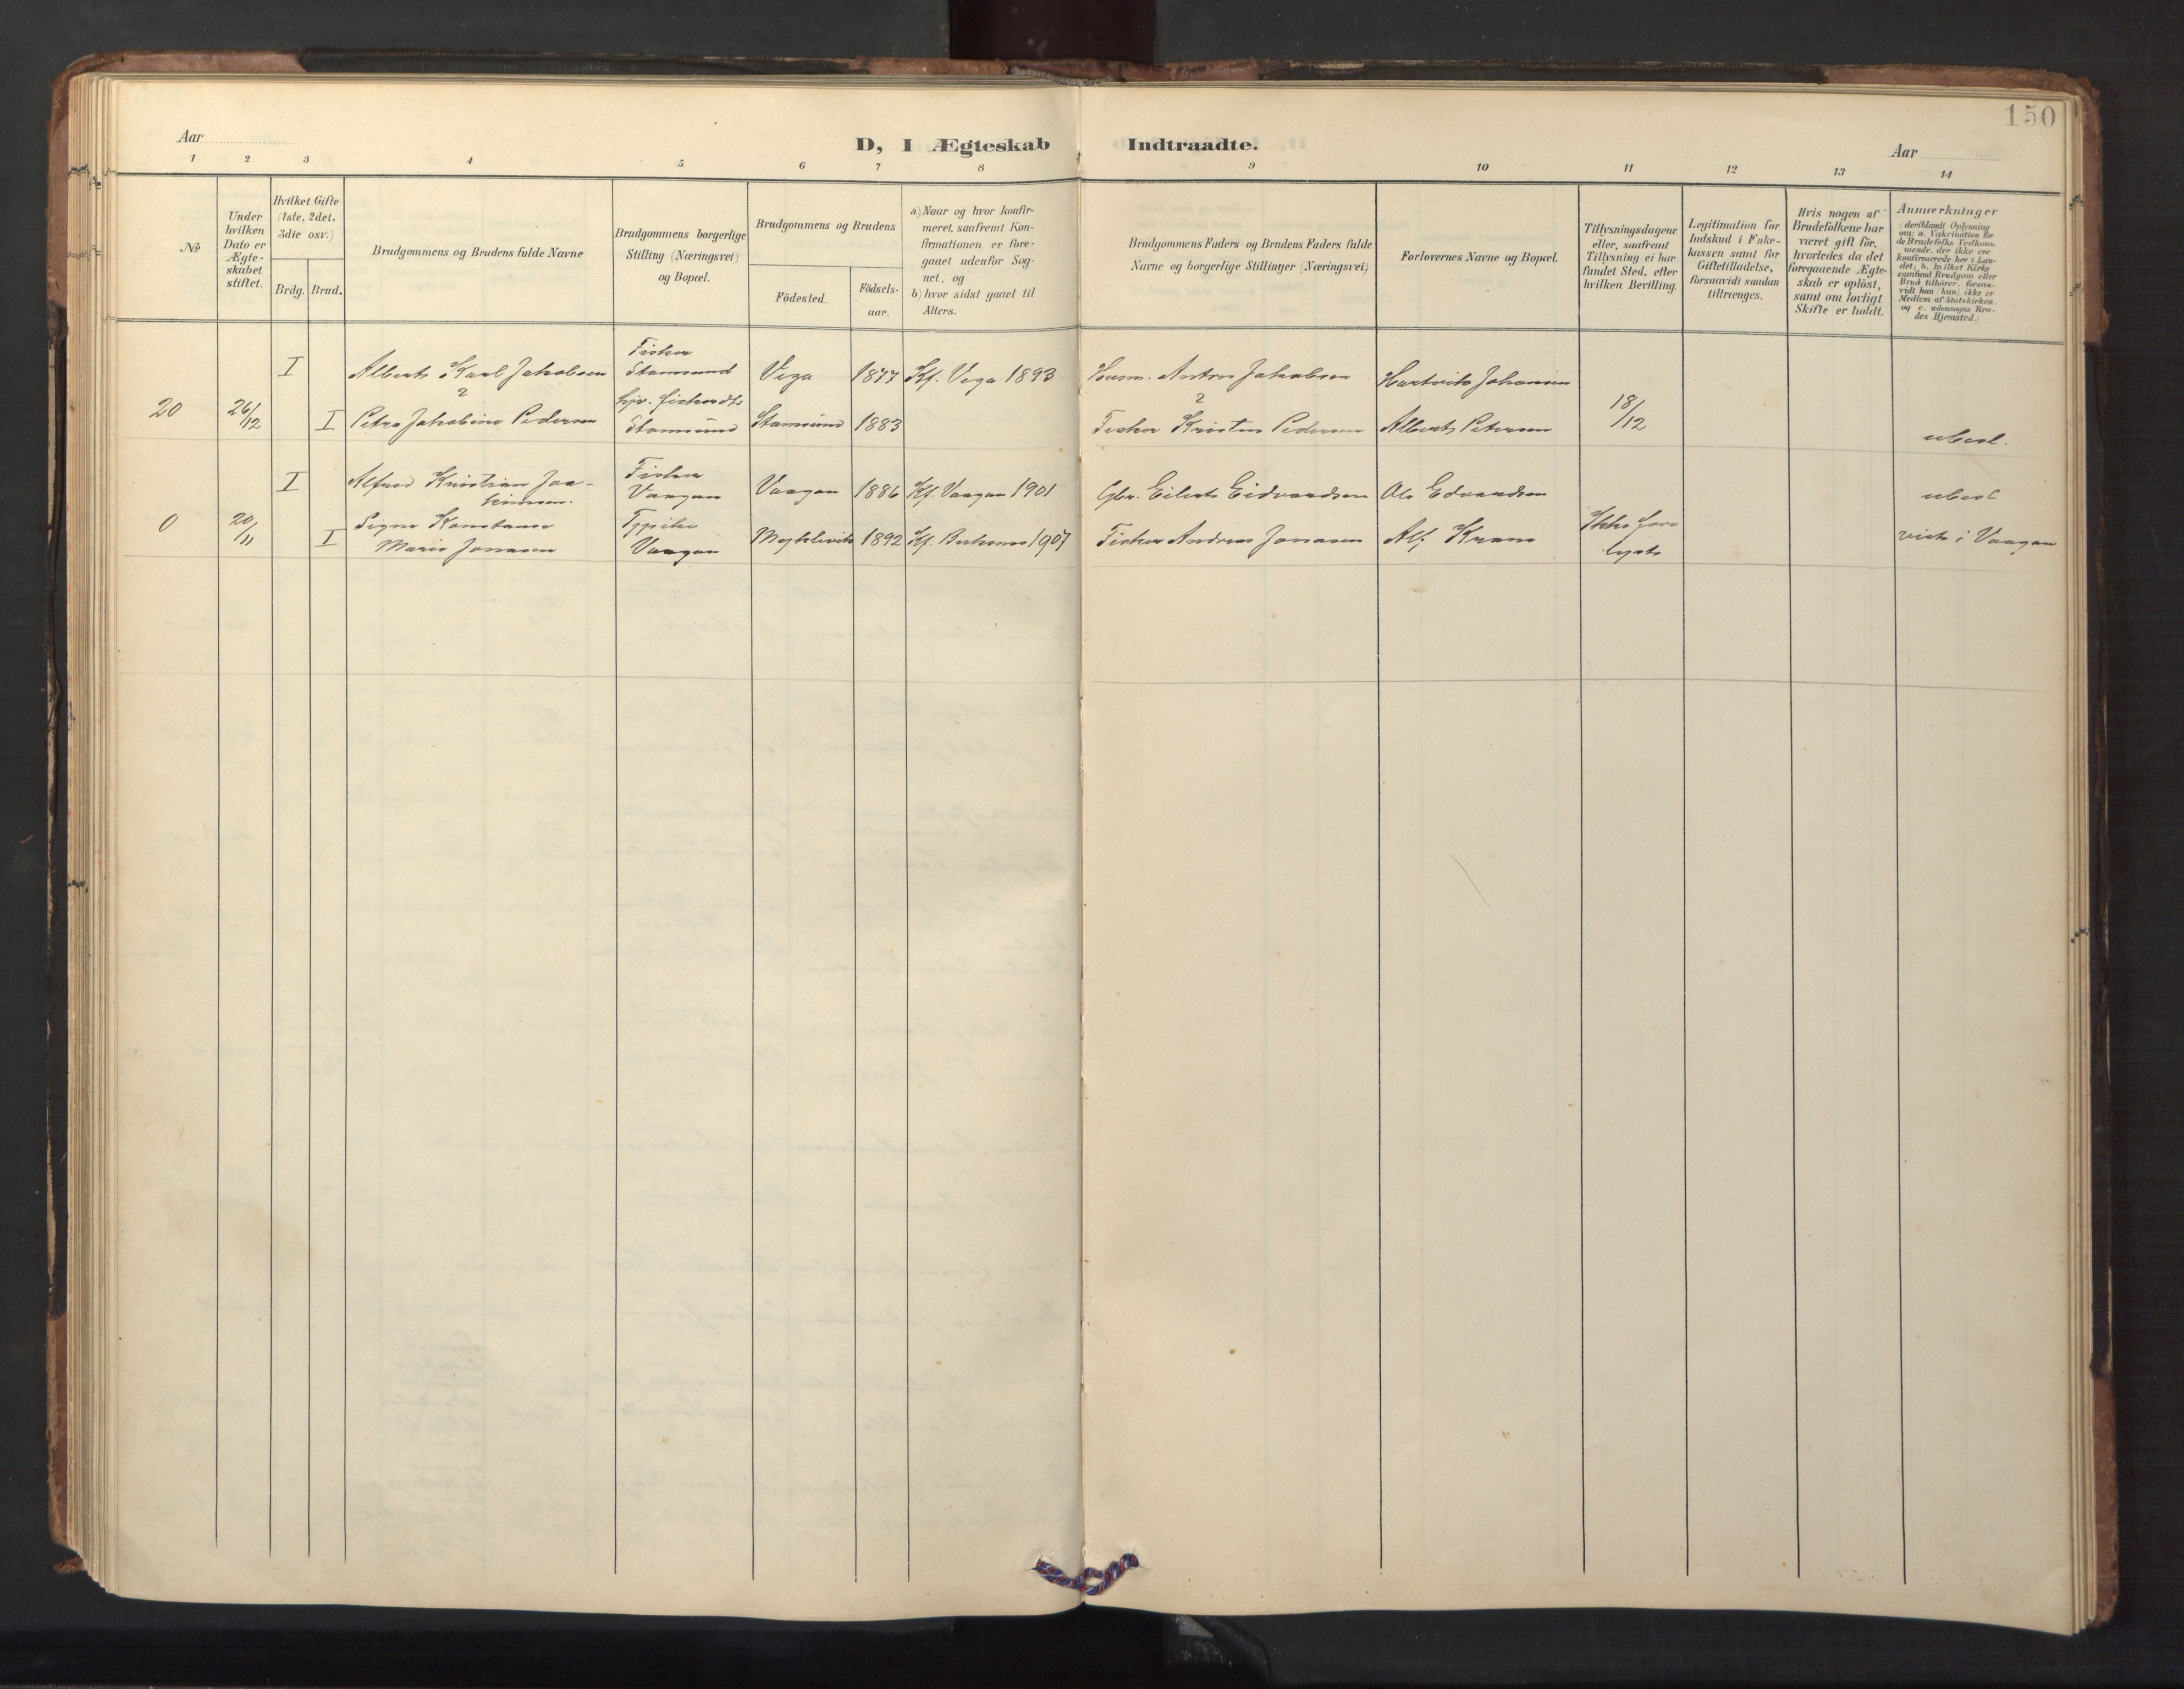 150
Aar
D, I Ægteskab Indtraadte.
Aar
1 2 3 4 5 6 7 8 9 10 11 12 13 14
No
Under
hvilken
Dato er
Ægte-
skabet
stiftet.
Hvilket Gifte
(1ste, 2det,
3die osv.)
Brdg. Brud.
Brudgommens og Brudens fulde Navne
Brudgommens borgerlige
Stilling (Næringsvei)
og Bopæl.
Brudgommens og Brudens
Födested.
Födsels-
aar.
a) Naar og hvor konfir-
meret, saafremt Kon-
firmationen er fore-
gaaet udenfor Sog-
net, og
b) hvor sidst gaaet til
Alters.
Brudgommens Faders og Brudens Faders fulde
Navne og borgerlige Stillinger (Næringsvei)
Forlovernes Navne og Bopæl.
Tillysningsdagene
eller, saafremt
Tillysning ei har
fundet Sted, efter
hvilken Bevilling.
Legitimation for
Indskud i Enke-
kassen samt for
Giftetilladelse,
forsaavidt saadan
tiltrænges.
Hvis nogen af
Brudefolkene har
været gift för,
hvorledes da det
foregaaende Ægte-
skab er oplöst,
samt om lovligt
Skifte er holdt.
Anmærkninger
(deriblandt Oplysning
om: a. Vakcination for
de Brudefolks Vedkom-
mende, der ikke ere
konfirmerede her i Lan-
det; b. hvilket Kirke-
samfund Brudgom eller
Brud tilhörer, forsaa-
vidt han (hun) ikke er
Medlem af Statskirken,
og c. udensogns Bru-
des Hjemsted.)
I Albert Karl Jakobsen Fisker Stamsund Vega 1877 Kf. Vega 1893 Husm. Anton Jakobsen Hartvik Johansen
20 26/12 I Petra Jakobine Pedersen Stamsund Stamsund 1883 Fisker Kristen Pedersen Albert Petersen 18/12 ubesl.
I Alfred Kristian Joa-
kimsen. Fisker Vaagan Vaagan 1886 Kf. Vaagan 1901 Gbr. Eilert Edvardsen Ole Edvardsen ubesl
0 20/11 I Signe Konstanse
Marie Jonasen Vaagan 1892 Kf. Buksnes 1907 Fisker Andreas Jonasen Alf Krane Ikke for-
lyst viet i Vaagan